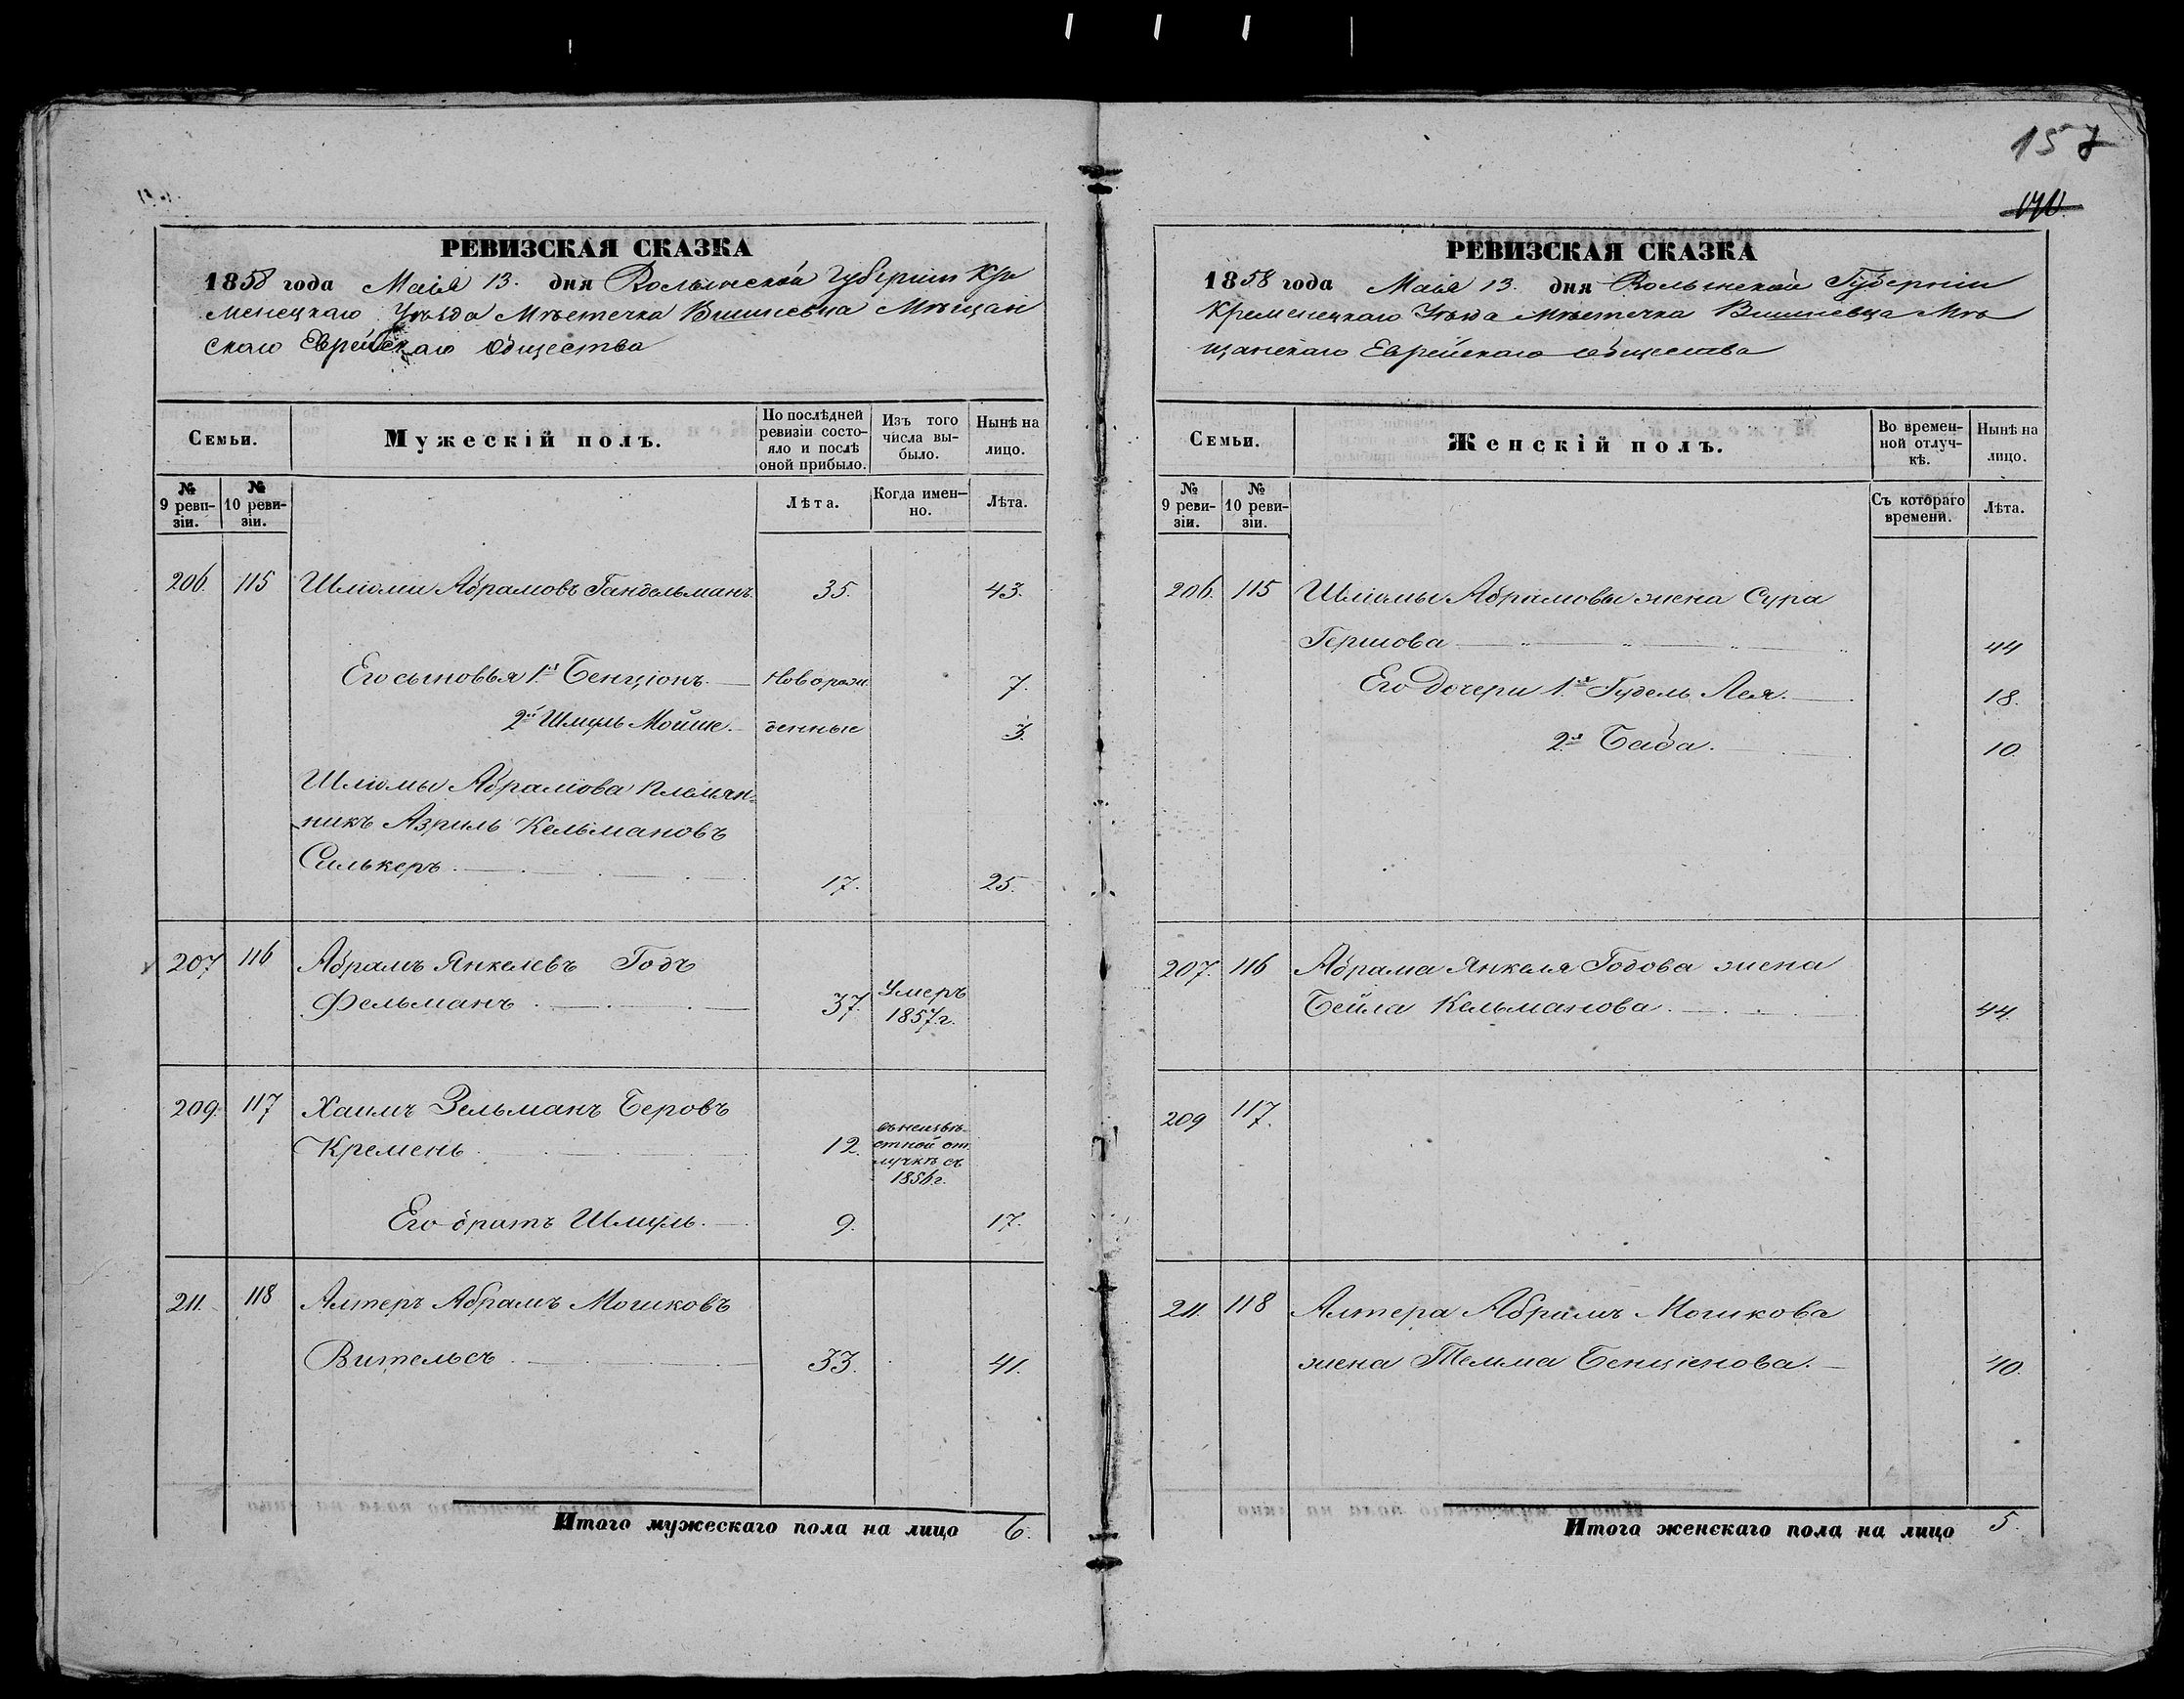 157
170.
РЕВИЗСКАЯ СКАЗКА
1858 года Маія 13. дня Волынской Губерніи Кре
менецкаго Уѣзда Мѣстечка Вишневца Мѣщан
скаго Еврейскаго Общества
Семьи.
Мужескій полъ.
По послѣдней
ревизіи состо-
яло и послѣ
оной прибыло.
Изъ того
числа вы-
было.
Нынѣ на
лицо.
№
9 реви-
зіи.
№
10 реви-
зіи.
Лѣта.
Когда имен-
но.
Лѣта.
206. 115 Шліомы Абрамовъ Гандельманъ. 35. 43.
Его сыновья 1й Бенціонъ. Новорож 7.
2й Шмуль Мойше. денные 3.
Шліомы Абрамова племян-
никъ Азриль Кельмановъ
Силькеръ. 17. 25.
207 116 Абрамъ Янкелевъ Годъ
Фельманъ. 37. Умеръ
1857г.
209. 117 Хаимъ Зельманъ Беровъ
Кремень. 12. въ неизвѣ-
стной от
лучкѣ съ
1854г.
Его братъ Шмуль. 9. 17.
211. 118 Алтеръ Абрамъ Мошковъ
Вительсъ. 33. 41.
Итого мужескаго пола на лицо 6.
РЕВИЗСКАЯ СКАЗКА
1858 года Маія 13. дня Волынской Губерніи
Кременецкаго Уѣзда Мѣстечка Вишневца Мѣ
щанскаго Еврейскаго общества
Семьи.
Женскій полъ.
Во времен-
ной отлуч-
кѣ.
Нынѣ на
лицо.
№
9 реви-
зіи.
№
10 реви-
зіи.
Съ котораго
времени.
Лѣта.
206. 115 Шліомы Абрамова жена Сура
Гершова 44
Его дочери 1я Гудель Лея. 18.
2я Баба. 10.
207. 116 Абрама Янкеля Годова жена
Бейла Кельманова. 44.
209 117.
211. 118 Алтера Абрамъ Мошкова
жена Темма Бенціонова. 40.
Итого женскаго пола на лицо 5.